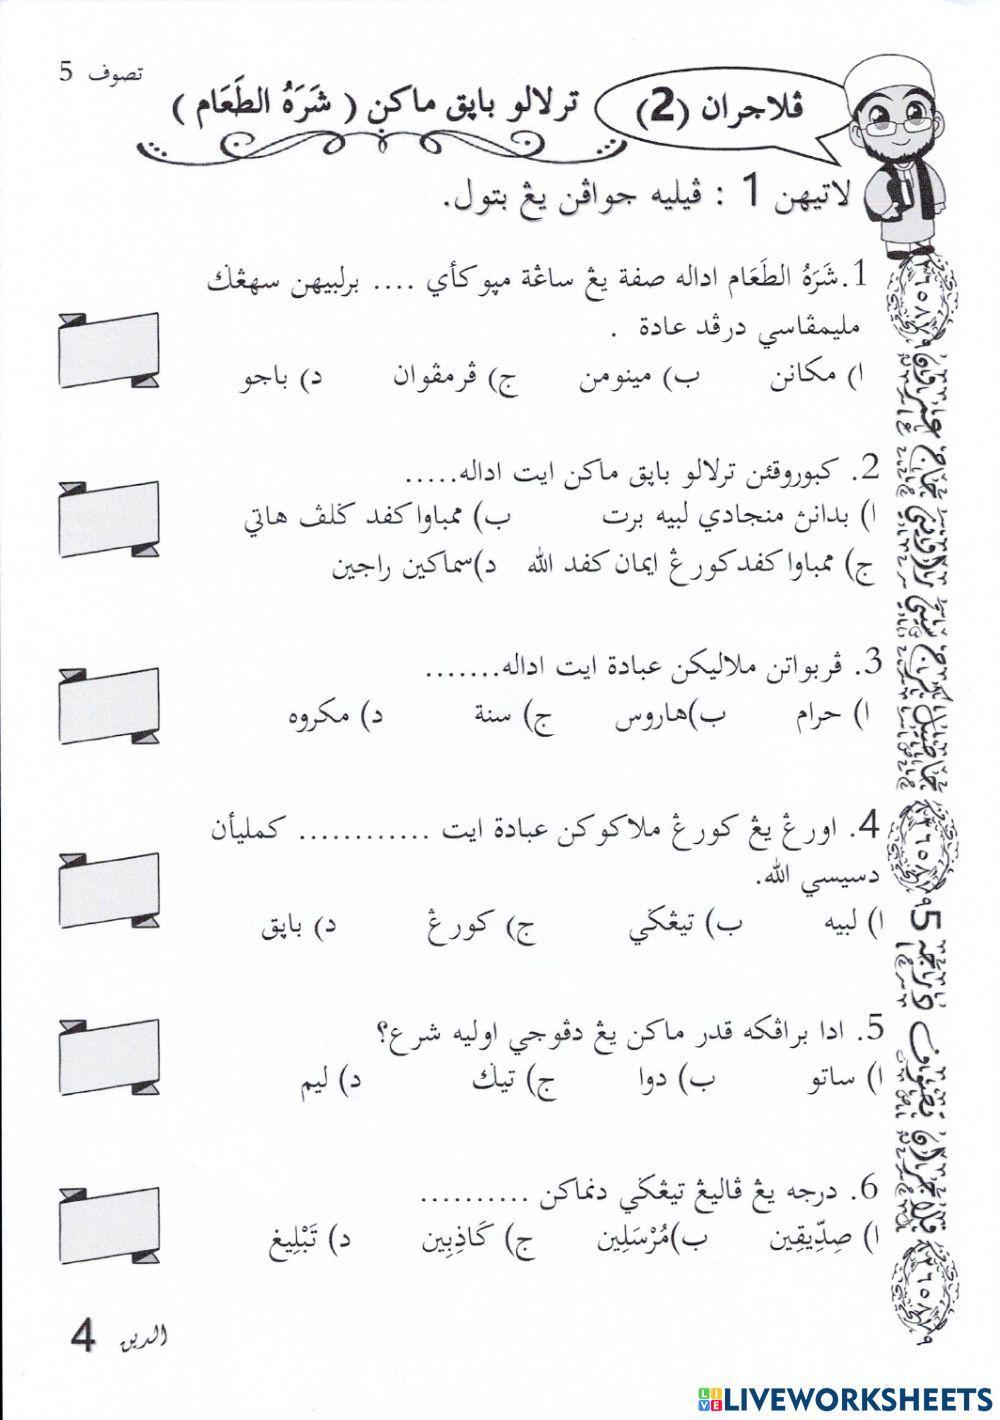 تصوف 5
ڤلاجران (2)
ترلالو باڽق ماكن ( شَرَهُ الطَعَام )
لاتيهن 1 : ڤيليه جواڤن يڠ بتول.
1.شَرَهُ الطَعَام اداله صفة يڠ ساڠة مڽوكأي .... برلبيهن سهڠݢ
مليمڤاسي درڤد عادة .
ا) مكانن ب) مينومن ج) ڤرمڤوان د) باجو
2. كبوروقئن ترلالو باڽق ماكن ايت اداله.....
ا) بدانڽ منجادي لبيه برت ب) ممباوا كفد ݢلڤ هاتي
ج) ممباوا كفد كورڠ ايمان كفد الله د)سماكين راجين
3. ڤربواتن ملاليكن عبادة ايت اداله.......
ا) حرام ب)هاروس ج) سنة د) مكروه
4. اورڠ يڠ كورڠ ملاكوكن عبادة ايت ............ كمليأن
دسيسي الله.
ا) لبيه ب) تيڠݢي ج) كورڠ د) باڽق
5. ادا براڤكه قدر ماكن يڠ دڤوجي اوليه شرع؟
ا) ساتو ب) دوا ج) تيݢ د) ليم
6. درجه يڠ ڤاليڠ تيڠݢي دنماكن ..........
ا) صِدِّيقِين ب)مُرْسَلِين ج) كَاذِبِين د) تَبْلِيغ
الدين 4
LIVEWORKSHEETS